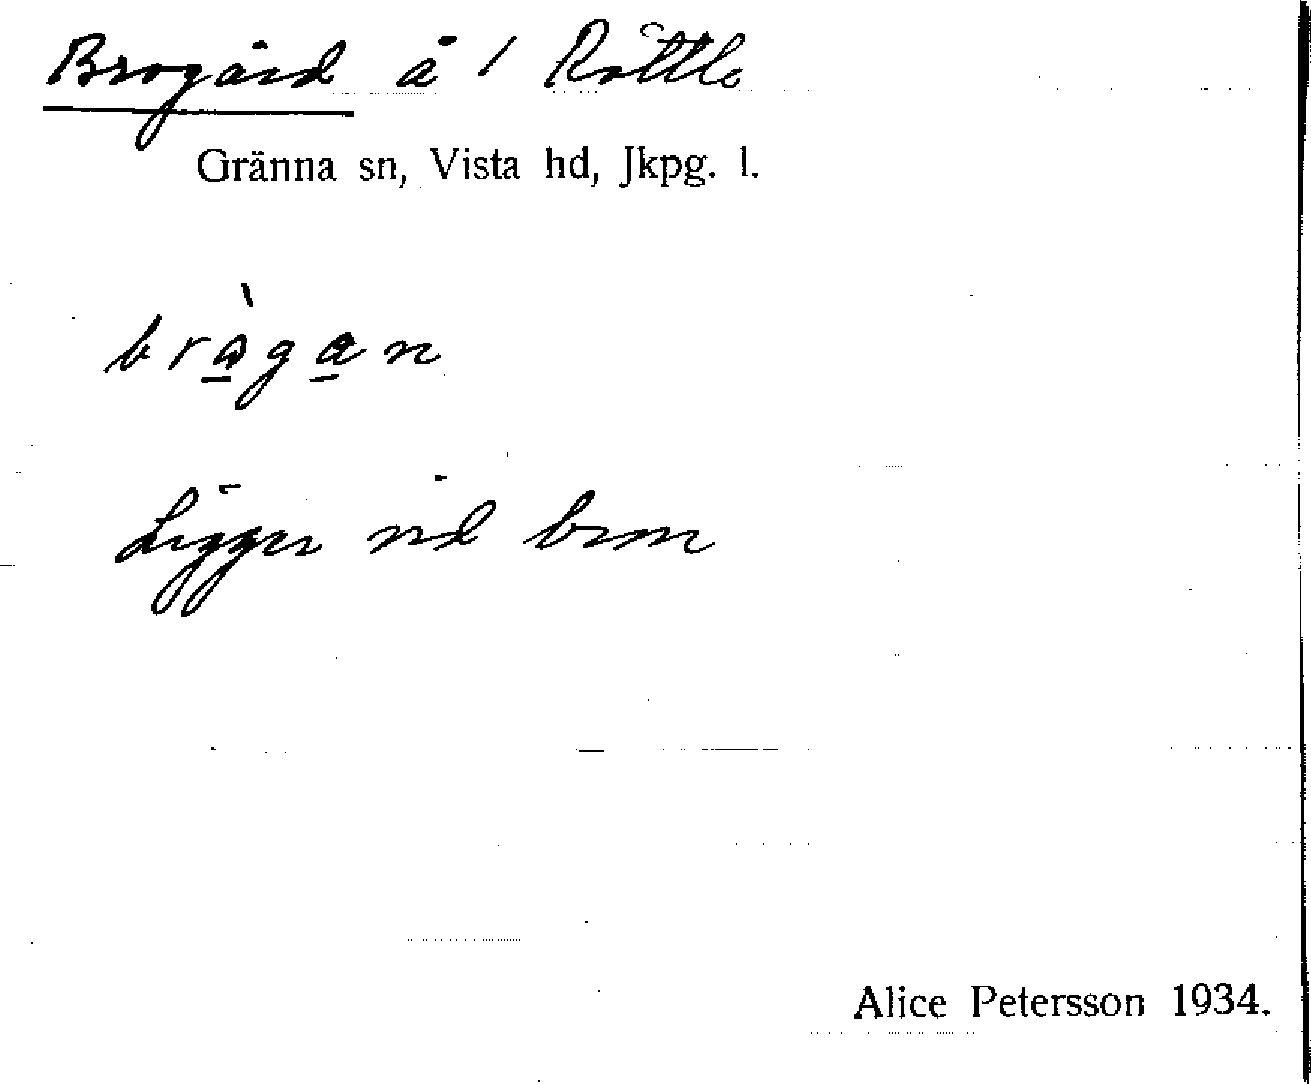 Brogård å 1 Röttle
Gränna sn, Vista hd, Jkpg. l.
brògan
Ligger vid bron
Alice Petersson 1934.